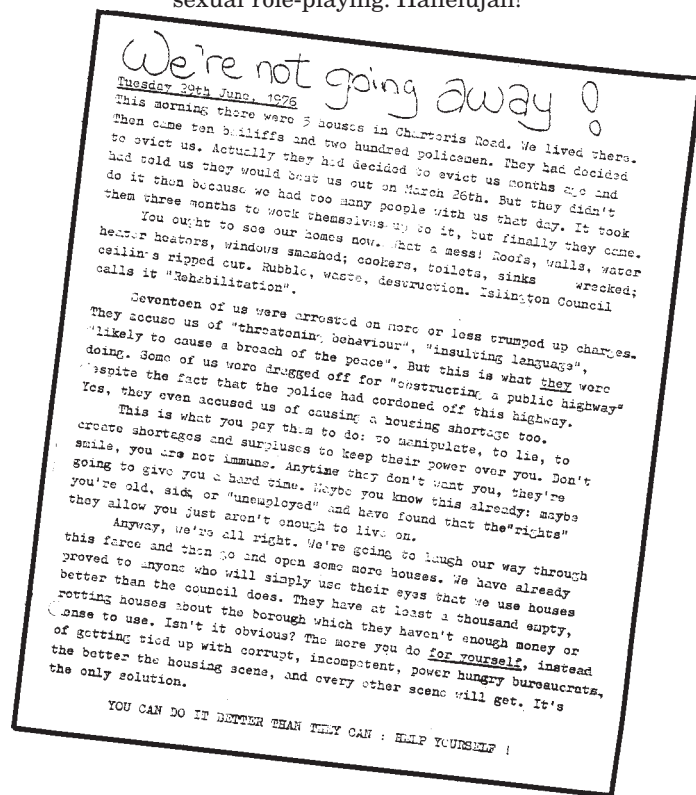 sexual role-playing. Hallelujah!
We're not going away!
Tuesday 29th June, 1976
This morning there were 5 houses in Charteris Road. We lived there.
Then came ten bailiffs and two hundred policemen. They had decided
to evict us. Actually they had decided to evict us months ago and
had told us they would boot us out on March 26th. But they didn't
do it then because we had too many people with us that day. It took
them three months to work themselves up to it, but finally they came.
You ought to see our homes now. What a mess! Roofs, walls, water
heater heaters, windows smashed; cookers, toilets, sinks wrecked;
ceilin's ripped out. Rubble, waste, destruction. Islington Council
calls it "Rehabilitation".
Seventeen of us were arrested on more or less trumped up charges.
They accuse us of "threatening behaviour", "insulting language",
"likely to cause a breach of the peace". But this is what they were
doing. Some of us were dragged off for "obstructing a public highway"
despite the fact that the police had cordoned off this highway.
Yes, they even accused us of causing a housing shortage too.
This is what you pay them to do: to manipulate, to lie, to
create shortages and surpluses to keep their power over you. Don't
smile, you are not immune. Anytime they don't want you, they're
going to give you a hard time. Maybe you know this already: maybe
you're old, sick, or "unemployed" and have found that the"rights"
they allow you just aren't enough to live on.
Anyway, we're all right. We're going to laugh our way through
this farce and then go and open some more houses. We have already
proved to anyone who will simply use their eyes that we use houses
better than the council does. They have at least a thousand empty,
rotting houses about the borough which they haven't enough money or
sense to use. Isn't it obvious? The more you do for yourself, instead
of getting tied up with corrupt, incompetent, power hungry bureaucrats,
the better the housing scene, and every other scene will get. It's
the only solution.
YOU CAN DO IT BETTER THAN THEY CAN : HELP YOURSELF !